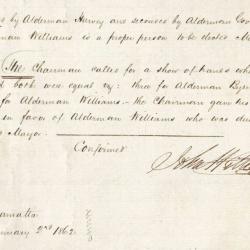 s by Alderman Harvey and seconded by Alderman Go
man Williams is a proper person to be elected M
The Chairman called for a show of hands wh
d both were equal viz: three for Alderman Byrn
for Alderman Williams — the Chairman gave his
in favor of Alderman Williams who was du
Mayor.
Confirmed
John
amatta
uary 2nd 1862